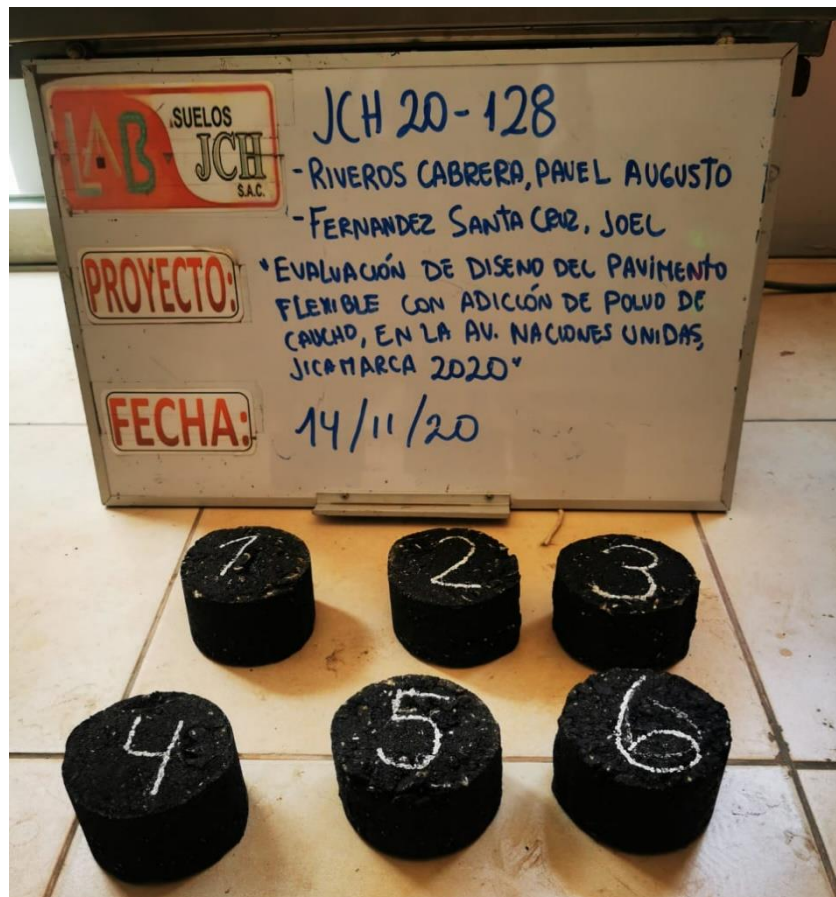 LAB SUELOS JCH S.A.C.
JCH 20-128
- RIVEROS CABRERA, PAVEL AUGUSTO
- FERNANDEZ SANTA CRUZ, JOEL
PROYECTO:
"EVALUACIÓN DE DISENO DEL PAVIMENTO
FLEXIBLE CON ADICCÓN DE POLVO DE
CAUCHO, EN LA AV. NACIONES UNIDAS,
JICAMARCA 2020"
FECHA:
14/11/20
1
2
3
4
5
6